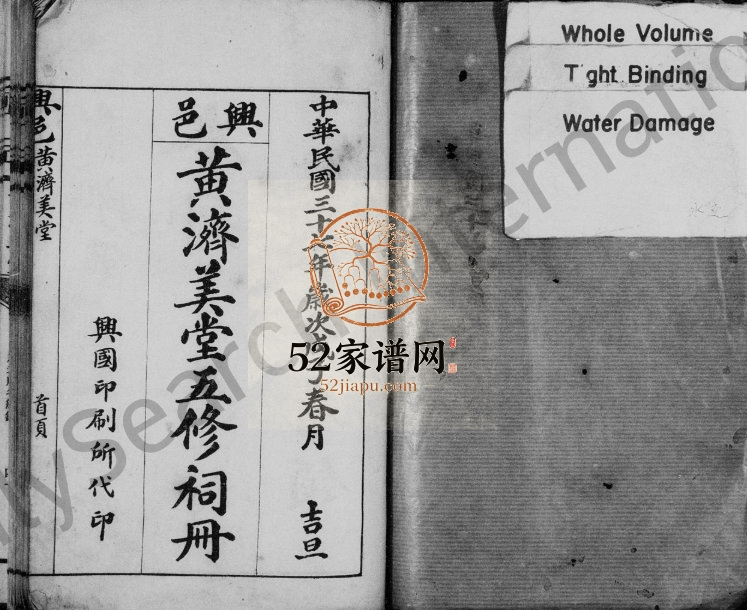 Whole Volume
T ght Binding
Water Damage
中華民國三十年歲次子春月 吉旦
興邑
黄濟美堂五修祠冊
興國印刷所代印
興邑 黄濟美堂
首頁
52家谱网
52jiapu.com
lySearch Internatio